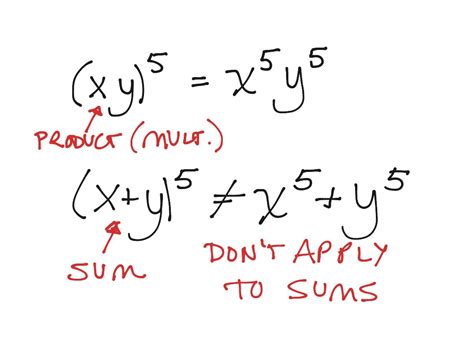 (xy)⁵ = x⁵y⁵
PRODUCT (MULT.)
(x+y)⁵ ≠ x⁵+y⁵
SUM DON'T APPLY
TO SUMS